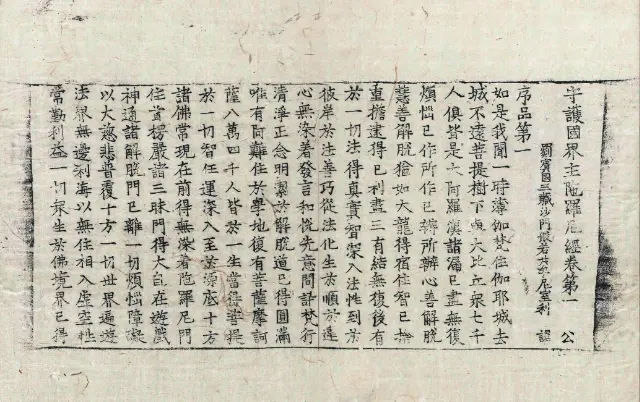 守護國界主陀羅尼經卷第一 公
罽賓國三藏沙門般若共牟尼室利 譯
序品第一
如是我聞一時薄伽梵住伽耶城去
城不遠菩提樹下與大比丘衆七千
人俱皆是大阿羅漢諸漏已盡無復
煩惱已作所作已辦所辦心善解脫
慧善解脫猶如大龍得宿住智已捨
重擔逮得己利盡三有結無復後有
於一切法得真實智深入法性到於
彼岸於法善巧從法化生於順於違
心無染著發言和悅先意問訊梵行
清淨正念明慧於解脫道已得圓滿
唯有阿難住於學地復有菩薩摩訶
薩八萬四千人皆於一生當得菩提
於一切智任運深入至於源底十方
諸佛常現在前得無染著陀羅尼門
住首楞嚴諸三昧門得大自在遊戲
神通諸解脫門已離一切煩惱障礙
以大慈悲普覆十方一切世界遍遊
法界無邊剎海以無住相入虛空性
常勤利益一切衆生於佛境界已得